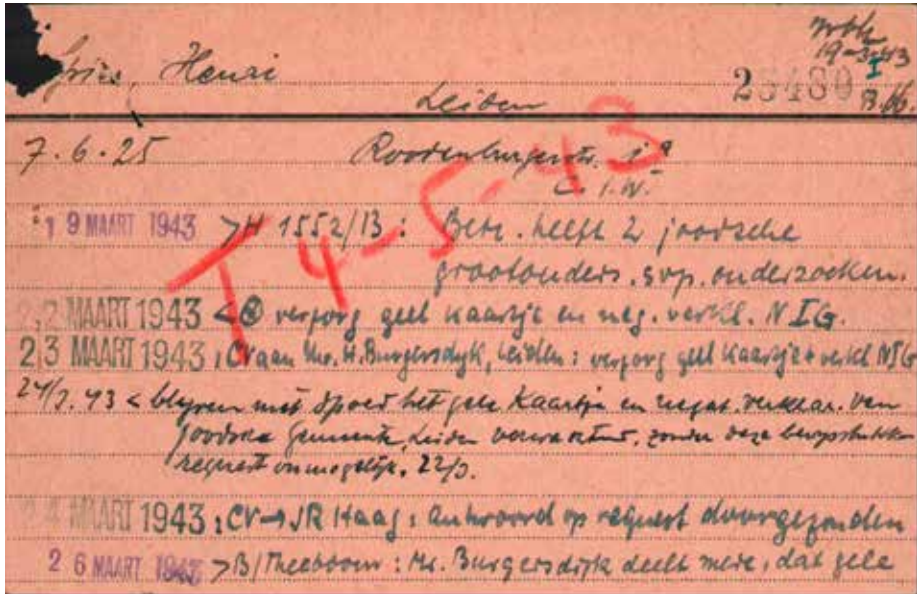 19-3-43
Vries, Henri
I
23480 B.
Leiden
7.6.25 Roodenburgerstr. 1a
C.I.W.
T 4-5-43
19 MAART 1943 >H 1552/13: Betr. heeft 2 joodsche
grootouders. svp. onderzoeken.
22 MAART 1943 < verzorg geel kaartje en neg. verkl. NIG.
23 MAART 1943: CV aan Mr. H. Burgersdyk, Leiden: verzorg geel kaartje + verkl NIG
24/3.43 < blyven met spoed het gele kaartje en negat. verklar. van
Joodsche Gemeente Leiden verwachten, zonder deze bewysstukken
request onmogelijk. 22/3.
24 MAART 1943: CV→JR Haag: Antwoord op request doorgezonden
26 MAART 1943 >B/Theeboom: Mr. Burgersdijk deelt mede, dat gele